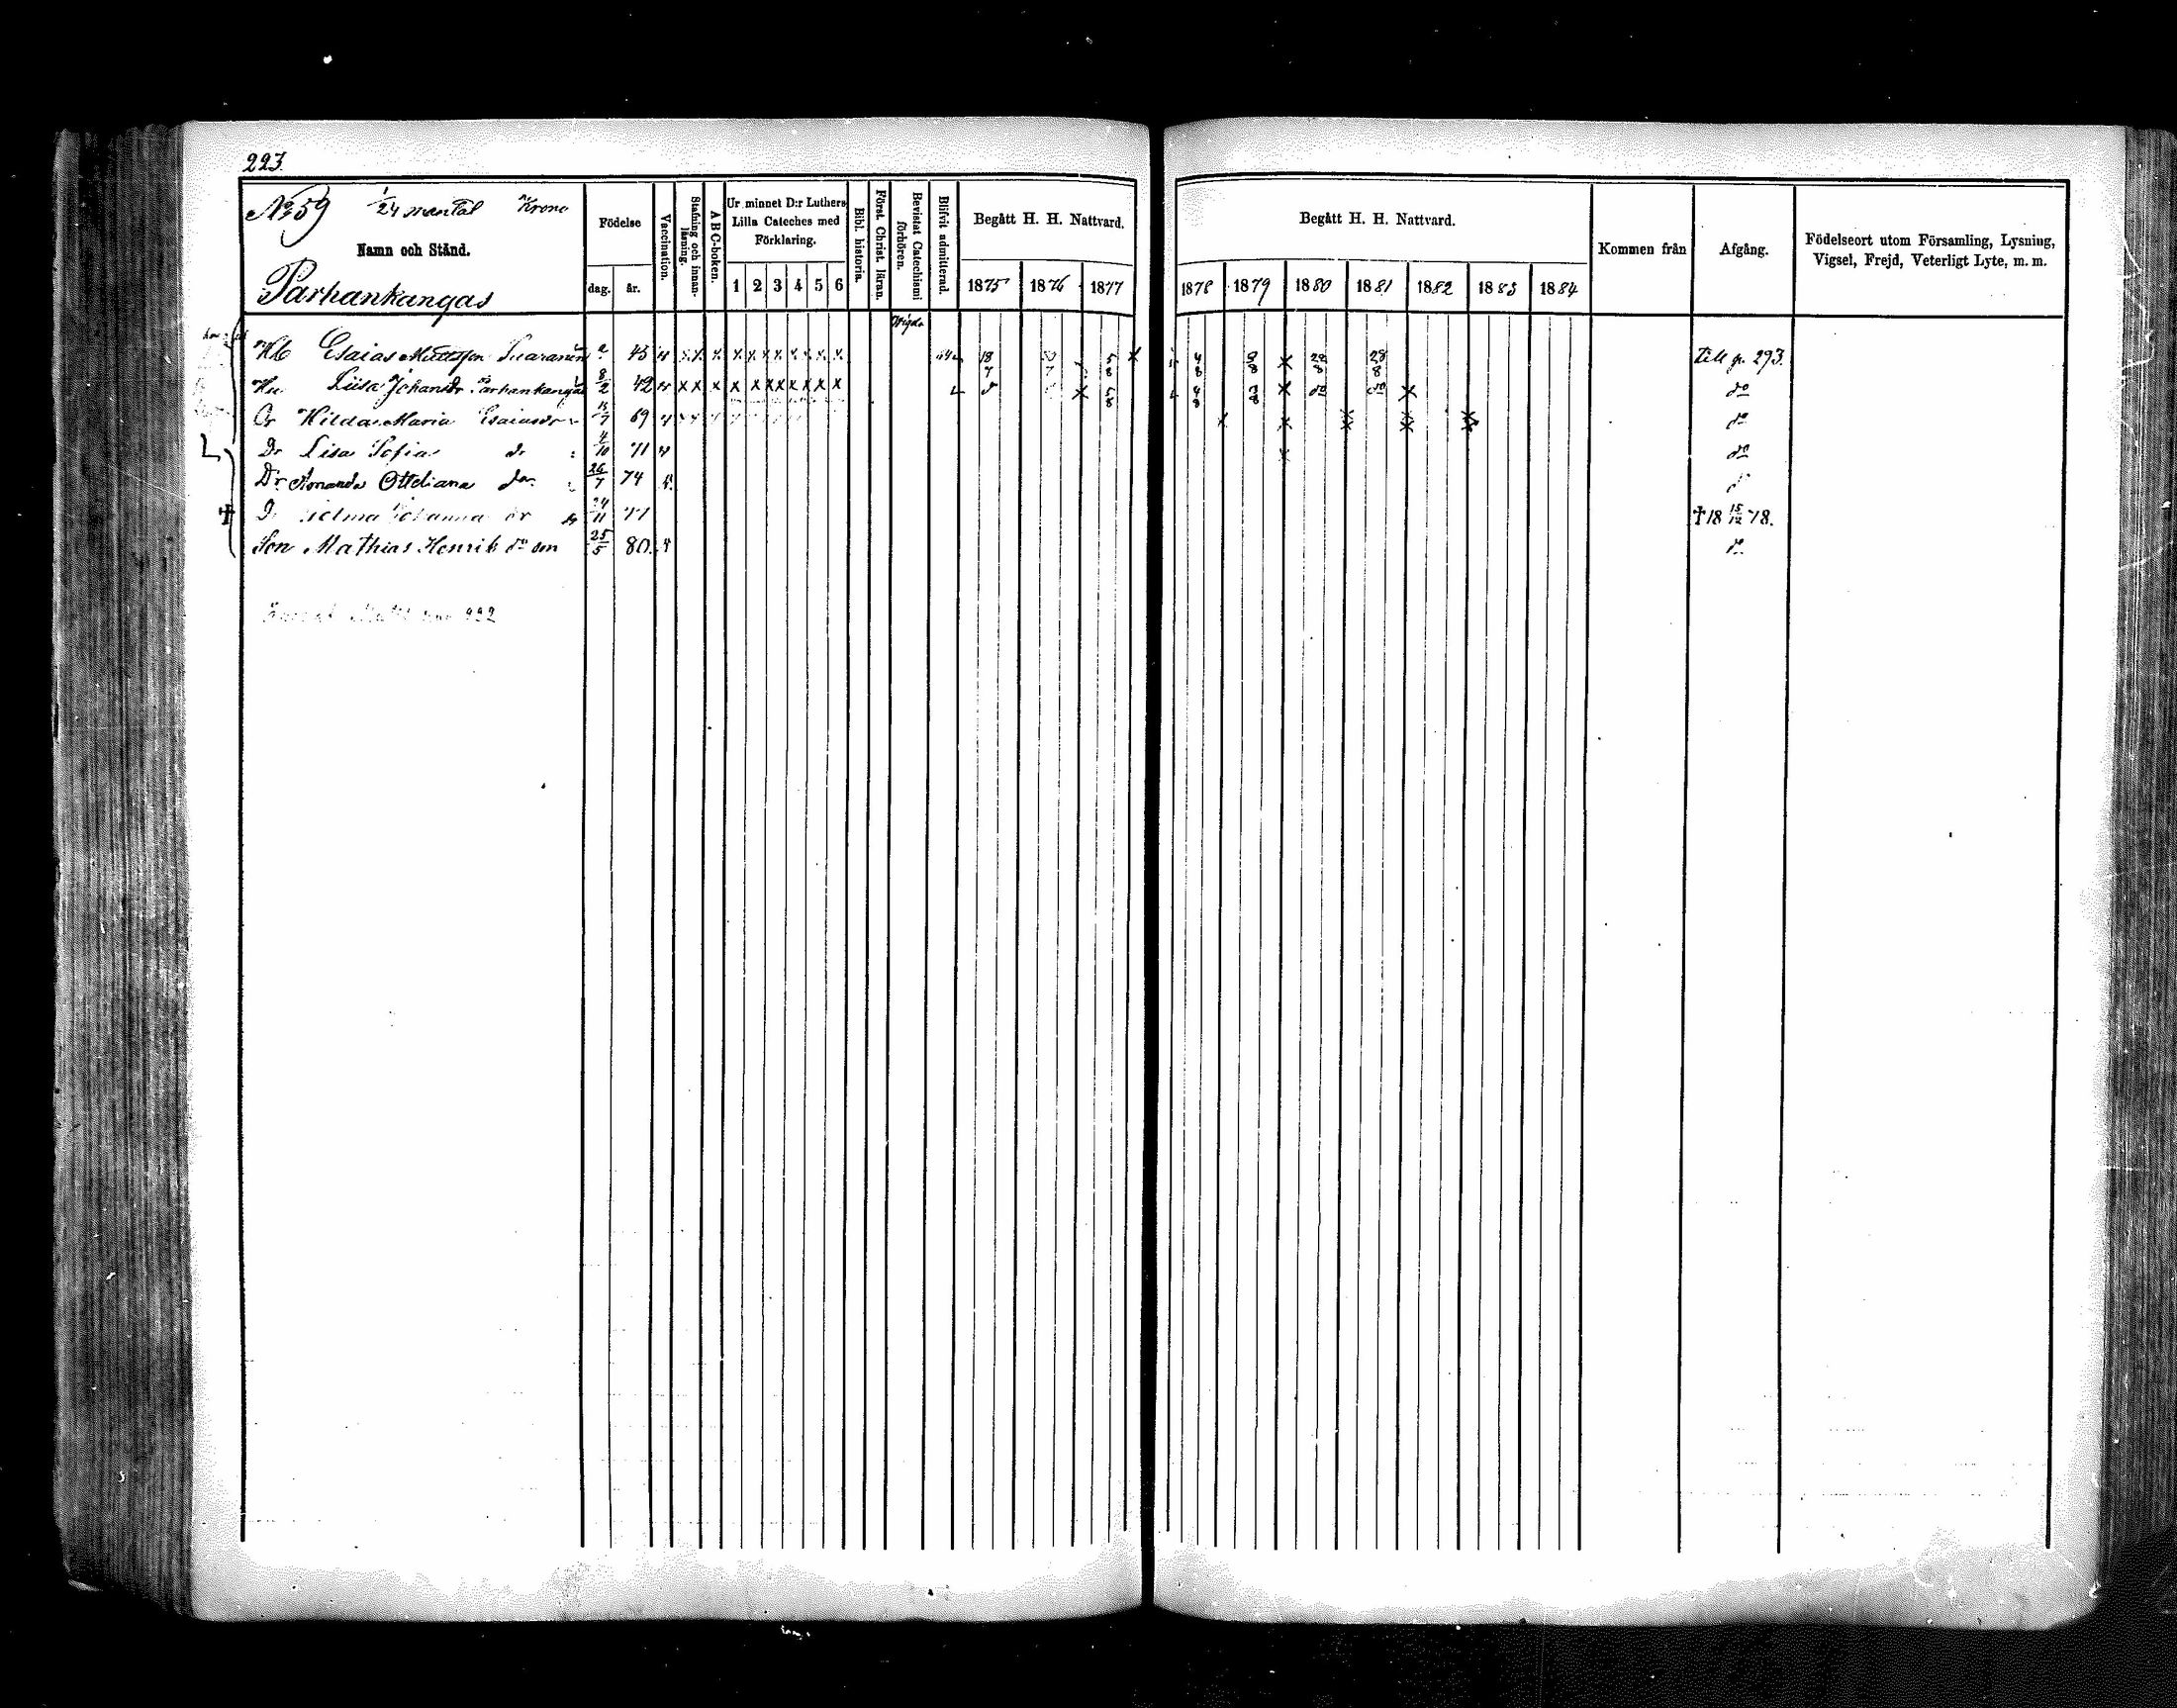 223.
No 59 1/24 mantal Krono
Namn och Stånd.
Parhankangas
Födelse
dag. år.
Vaccination.
Stafning och innanläsning.
ABC-boken.
Ur minnet D:r Luthers Lilla Cateches med Förklaring.
1 2 3 4 5 6
Bibl. historia.
Först. Christ. läran.
Bevistat Catechismi förhören.
Blifvit admitterad.
Begått H. H. Nattvard.
1875 1876 1877
Begått H. H. Nattvard.
1878 1879 1880 1881 1882 1883 1884
Kommen från
Afgång.
Födelseort utom Församling, Lysning, Vigsel, Frejd, Veterligt Lyte, m. m.
Esaias Mattsson 43 x x x x x x x x x 18/7 5/8 x 4/8 9/8 x 28/8 28/8 Till p. 293.
Hu Liisa Johansdr Parhankangas 8/2 42 x x x x x x x x x x 5/8 4/8 x do do x do
Hilda Maria Esaiasdr 15/7 69 x x x x x do
Dr Lisa Sofia dr 4/10 71 x do
Dr Amanda Otteliana dr 26/7 74
† Johanna dr 24/11 77 † 18 15/12 78.
Son Mathias Henrik do son 25/5 80 do